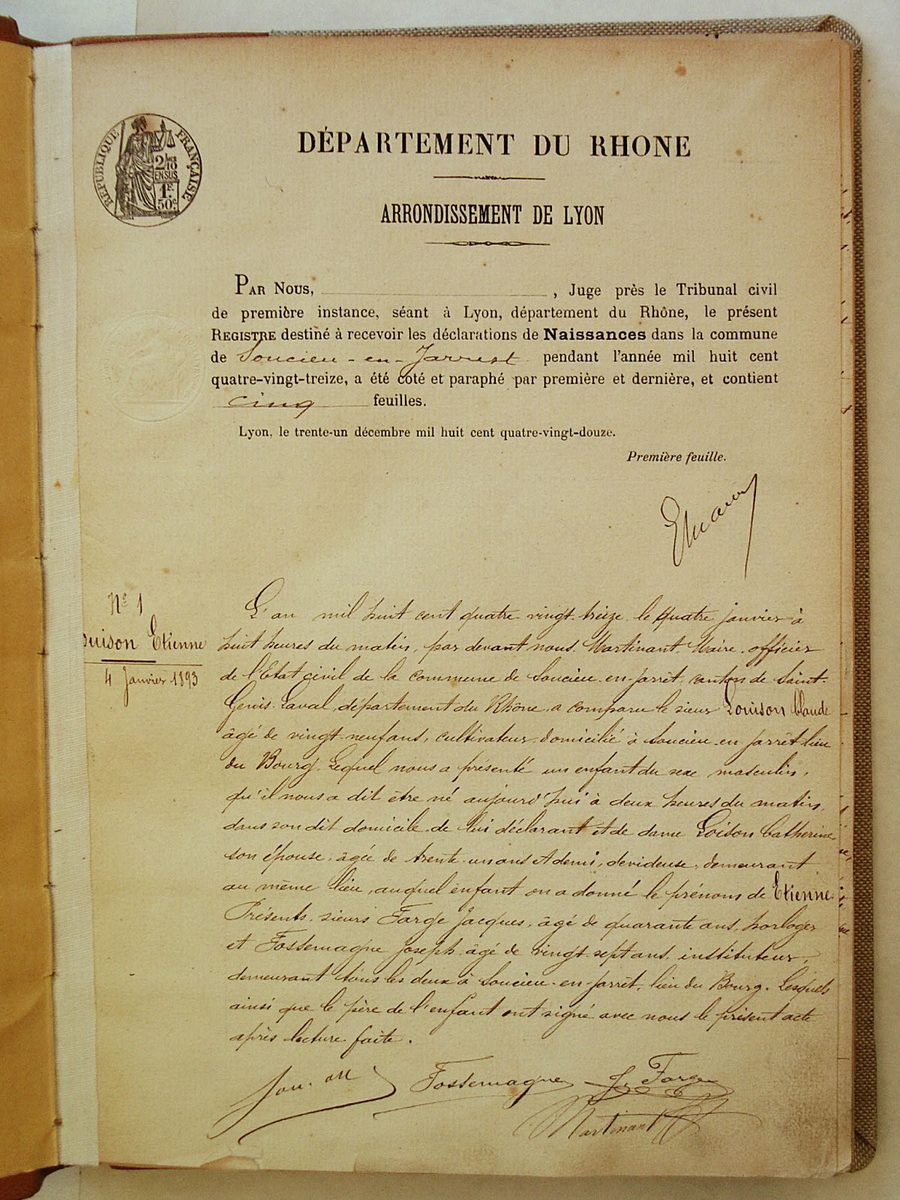 RÉPUBLIQUE FRANÇAISE
2/10
EN SUS
1F.
50c
DÉPARTEMENT DU RHONE
ARRONDISSEMENT DE LYON
PAR NOUS, , Juge près le Tribunal civil
de première instance, séant à Lyon, département du Rhône, le présent
REGISTRE destiné à recevoir les déclarations de Naissances dans la commune
de Soucieu-en-Jarrest pendant l'année mil huit cent
quatre-vingt-treize, a été coté et paraphé par première et dernière, et contient
cinq feuilles.
Lyon, le trente-un décembre mil huit cent quatre-vingt-douze.
Première feuille.
N° 1
ouison Etienne
4 Janvier 1893
L'an mil huit cent quatre vingt-treize le quatre janvier à
huit heures du matin, par devant nous Martinant Maire, officier
de l'Etat civil de la commune de Soucieu-en-jarrêt, canton de Saint-
Genis-Laval, département du Rhône, a comparu le sieur Louison Claude
âgé de vingt-neuf ans, cultivateur domicilié à Soucieu-en-jarrêt lieu
du Bourg. Lequel nous a présenté un enfant du sexe masculin,
qu'il nous a dit être né aujourd'hui à deux heures du matin,
dans son dit domicile de lui déclarant et de dame Loison Catherine
son épouse, âgée de trente-un ans et demi, devideuse, demeurant
au même lieu, auquel enfant on a donné le prénoms de Etienne
Présents sieurs Farge Jacques, âgé de quarante ans, horloger
et Fossemagne Joseph âgé de vingt-sept ans, instituteur,
demeurant tous les deux à Soucieu-en-jarrêt, lieu du Bourg. Lesquels
ainsi que le père de l'enfant ont signé avec nous le présent acte
après lecture faite.
Fossemagne J. Farge
Martinant